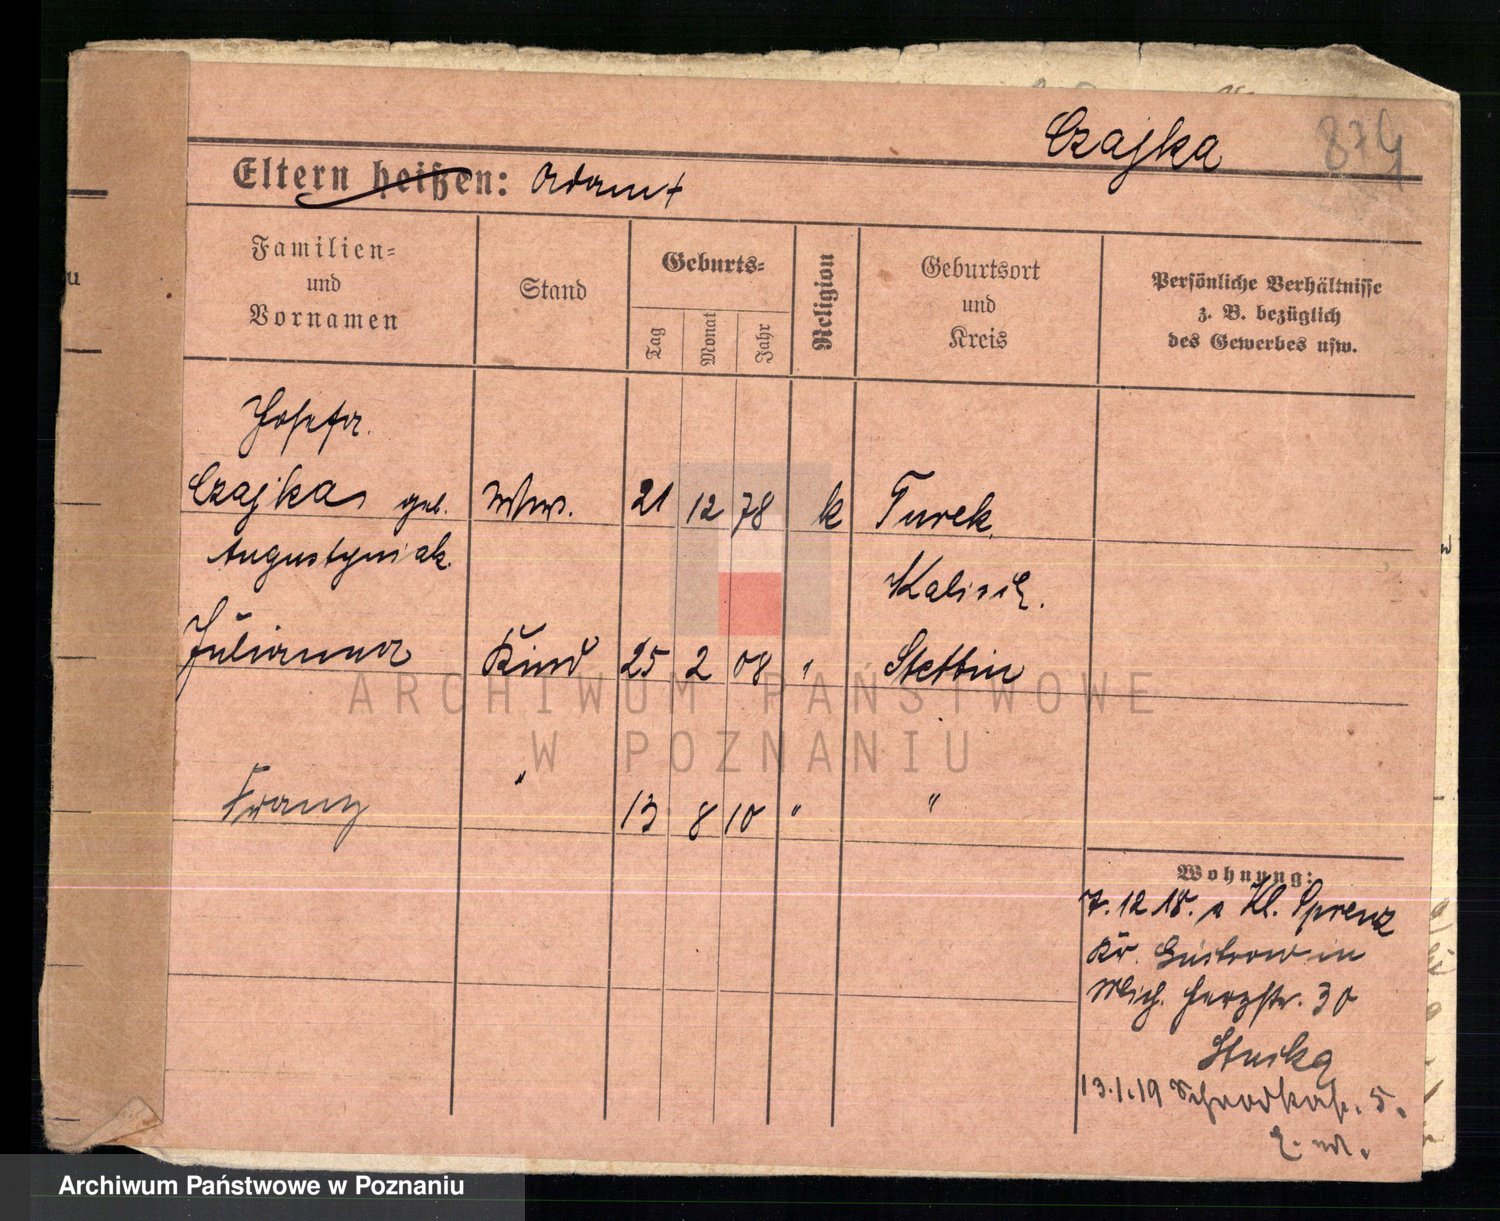 Czajka
874
Eltern heißen: Adamt
Familien=
und
Vornamen
Stand
Geburts=
Tag
Monat
Jahr
Religion
Geburtsort
und
Kreis
Persönliche Verhältnisse
z. B. bezüglich
des Gewerbes usw.
Josefa
Czajka geb. Ww. 21 12 78 k Turek
Augustyniak
Kalisch.
Julianna Kind 25 2 08 " Stettin
Franz " 13 8 10 " "
Wohnung:
7. 12 18. a Kl. Sprenz
Kr. Güstrow in
30
13.1.19 5.
ARCHIWUM PAŃSTWOWE
W POZNANIU
Archiwum Państwowe w Poznaniu